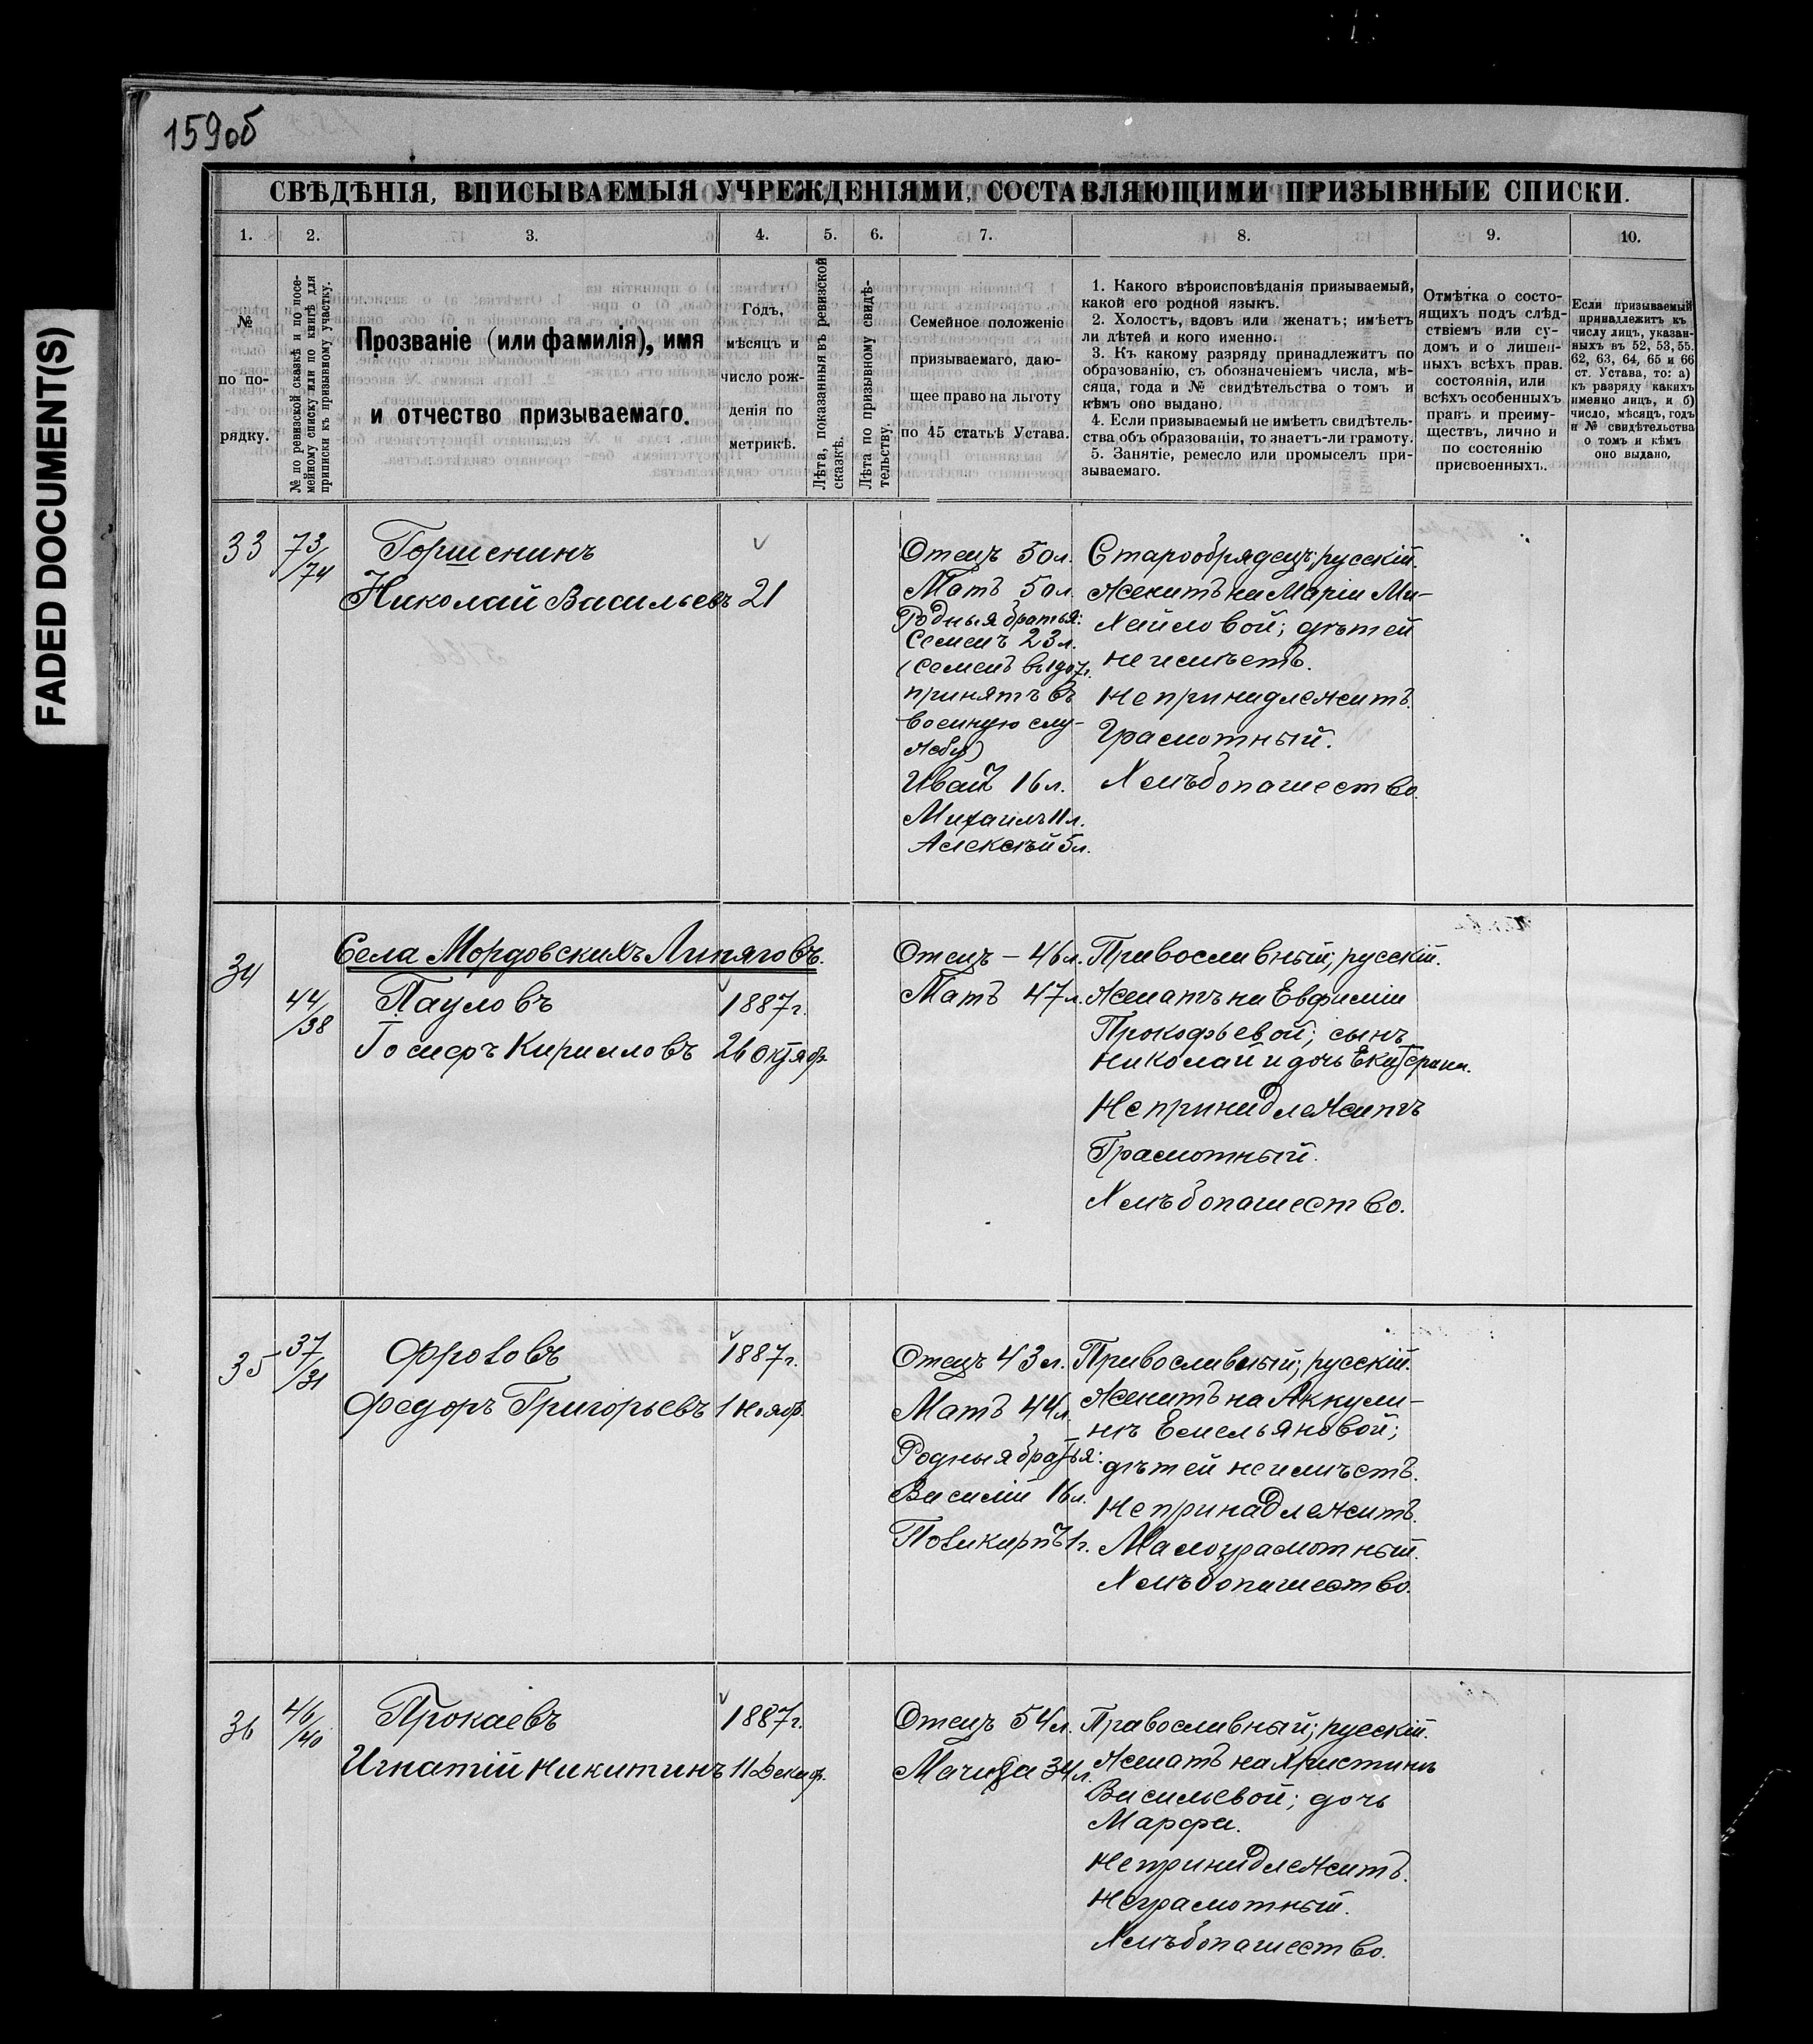 FADED DOCUMENT(S)
159об
СВѢДѢНІЯ, ВПИСЫВАЕМЫЯ УЧРЕЖДЕНІЯМИ, СОСТАВЛЯЮЩИМИ ПРИЗЫВНЫЕ СПИСКИ.
1. 2. 3. 4. 5. 6. 7. 8. 9. 10.
№
по по-
рядку.
№ по ревизской сказкѣ и по посе-
мейному списку или по книгѣ для
приписки къ призывному участку.
Прозваніе (или фамилія), имя
и отчество призываемаго.
Годъ,
мѣсяцъ и
число рож-
денія по
метрикѣ.
Лѣта, показанныя въ ревизской
сказкѣ.
Лѣта по призывному свидѣ-
тельству.
Семейное положеніе
призываемаго, даю-
щее право на льготу
по 45 статьѣ Устава.
1. Какого вѣроисповѣданія призываемый,
какой его родной языкъ.
2. Холостъ, вдовъ или женатъ; имѣетъ
ли дѣтей и кого именно.
3. Къ какому разряду принадлежитъ по
образованію, съ обозначеніемъ числа, мѣ-
сяца, года и № свидѣтельства о томъ и
кѣмъ оно выдано.
4. Если призываемый не имѣетъ свидѣтель-
ства объ образованіи, то знаетъ-ли грамоту.
5. Занятіе, ремесло или промыселъ при-
зываемаго.
Отмѣтка о состо-
ящихъ подъ слѣд-
ствіемъ или су-
домъ и о лишен-
ныхъ всѣхъ прав.
состоянія, или
всѣхъ особенныхъ
правъ и преиму-
ществъ, лично и
по состоянію
присвоенныхъ.
Если призываемый
принадлежитъ къ
числу лицъ, указан-
ныхъ въ 52, 53, 55.
62, 63, 64, 65 и 66
ст. Устава, то: а)
къ разряду какихъ
именно лицъ, и б)
число, мѣсяцъ, годъ
и № свидѣтельства
о томъ и кѣмъ
оно выдано.
33
73/74
Горшенинъ
Николай Васильевъ
21
Отецъ 50л.
Мать 50л.
Родныя братья:
Семенъ 23л.
(Семенъ въ 1907г.
принятъ въ
военную слу-
жбу)
Иванъ 16л.
Михаилъ 11л.
Алексѣй 5л.
Старообрядецъ; русскій.
Женитъ на Маріи Ми-
хайловой; дѣтей
не имѣетъ.
Не принадлежитъ.
Грамотный.
Хлѣбопашество.
34
44/38
Села Мордовскихъ Липяговъ.
Пауловъ
Іосифъ Кирилловъ
1887г.
26 Октяб.
Отецъ – 46л.
Мать 47л.
Православный; русскій.
Женатъ на Евфиміи
Прокофьевой; сынъ
Николай и дочь Екатерина.
Не принадлежитъ
Грамотный.
Хлѣбопашество.
35
37/31
Фроловъ
Федоръ Григорьевъ
1887г.
1 Нояб.
Отецъ 43л.
Мать 44л.
Родныя братья:
Василій 16л.
Поликарпъ 1г.
Православный; русскій.
Женитъ на Аккули-
нѣ Емельяновой;
дѣтей не имѣетъ.
Не принадлежитъ.
Малограмотный.
Хлѣбопашество.
36
46/40
Прокаевъ
Игнатій Никитинъ
1887г.
11 Декаб.
Отецъ 54л.
Мачиха 34л.
Православный; русскій.
Женатъ на Христинѣ
Васильевой; дочь
Марфа.
Не принадлежитъ.
Неграмотный.
Хлѣбопашество.